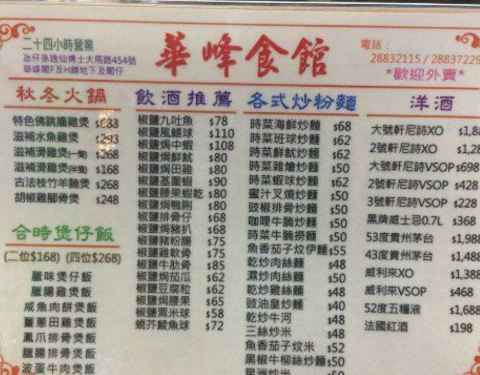 二十四小時營業
氹仔孫逸仙博士大馬路454號
華峰閣F及H舖地下及閣仔
華峰食館
電話：
28832115 / 28837229
*歡迎外賣*
秋冬火鍋
特色佛跳牆雞煲
滋補水魚雞煲 $293
滋補滑雞煲(一隻) $268
滋補滑雞煲(半隻) $168
古法枝竹羊腩煲 $268
胡椒雞腳骨煲 $248
合時煲仔飯
(二位$168) (四位$268)
臘味煲仔飯
臘腸雞煲飯
咸魚肉餅煲飯
薑蔥田雞煲飯
鳳爪排骨煲飯
臘腸排骨煲飯
波蛋牛肉煲飯
飲酒推薦
椒鹽九吐魚 $78
椒鹽風鱔球 $110
椒鹽焗中蝦 $108
椒鹽焗鮮魷 $80
椒鹽焗田雞 $80
椒鹽基圍蝦 $90
椒鹽腰果蝦乾 $80
椒鹽焗鴨脷 $80
椒鹽排骨仔 $68
椒鹽焗豬扒 $68
椒鹽豬粉腸 $75
椒鹽雞軟骨 $75
椒鹽牛肋骨 $85
椒鹽焗茄瓜 $62
椒鹽豆腐粒 $62
椒鹽焗腰果 $65
椒鹽粟米球 $58
蝦芥鯪魚球 $72
各式炒粉麵
時菜海鮮炒麵 $68
時菜班球炒麵 $62
時菜鮮魷炒麵 $62
時菜雜燴炒麵 $50
時菜蝦球炒麵 $62
蜜汁叉燒炒麵 $50
豉椒排骨炒麵 $50
咖哩牛腩炒麵 $50
時菜牛腩撈麵 $50
魚香茄子炆伊麵 $55
乾炒肉絲麵 $48
濕炒肉絲麵 $50
乾炒雞絲麵 $48
豉油皇炒麵 $40
乾炒牛河 $48
三絲炒米 $48
魚香茄子炆米 $52
黑椒牛柳絲炒麵 $50
星洲炒米
洋酒
大號軒尼詩XO
2號軒尼詩XO
大號軒尼詩VSOP $698
2號軒尼詩VSOP $428
3號軒尼詩VSOP $228
黑牌威士忌0.7L $368
53度貴州茅台
43度貴州茅台
威利來XO
威利來VSOP $468
52度五糧液
法國紅酒 $198